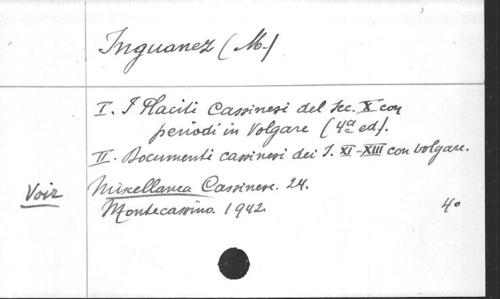 Inguanez (M.)
I. I Placiti Cassinesi del Sec. X con
periodi in Volgare (4ª ed).
II. Documenti cassinesi dei S. XI-XIII con volgare.
Voir Miscellanea Cassinese. 24.
Montecassino. 1942. 4°